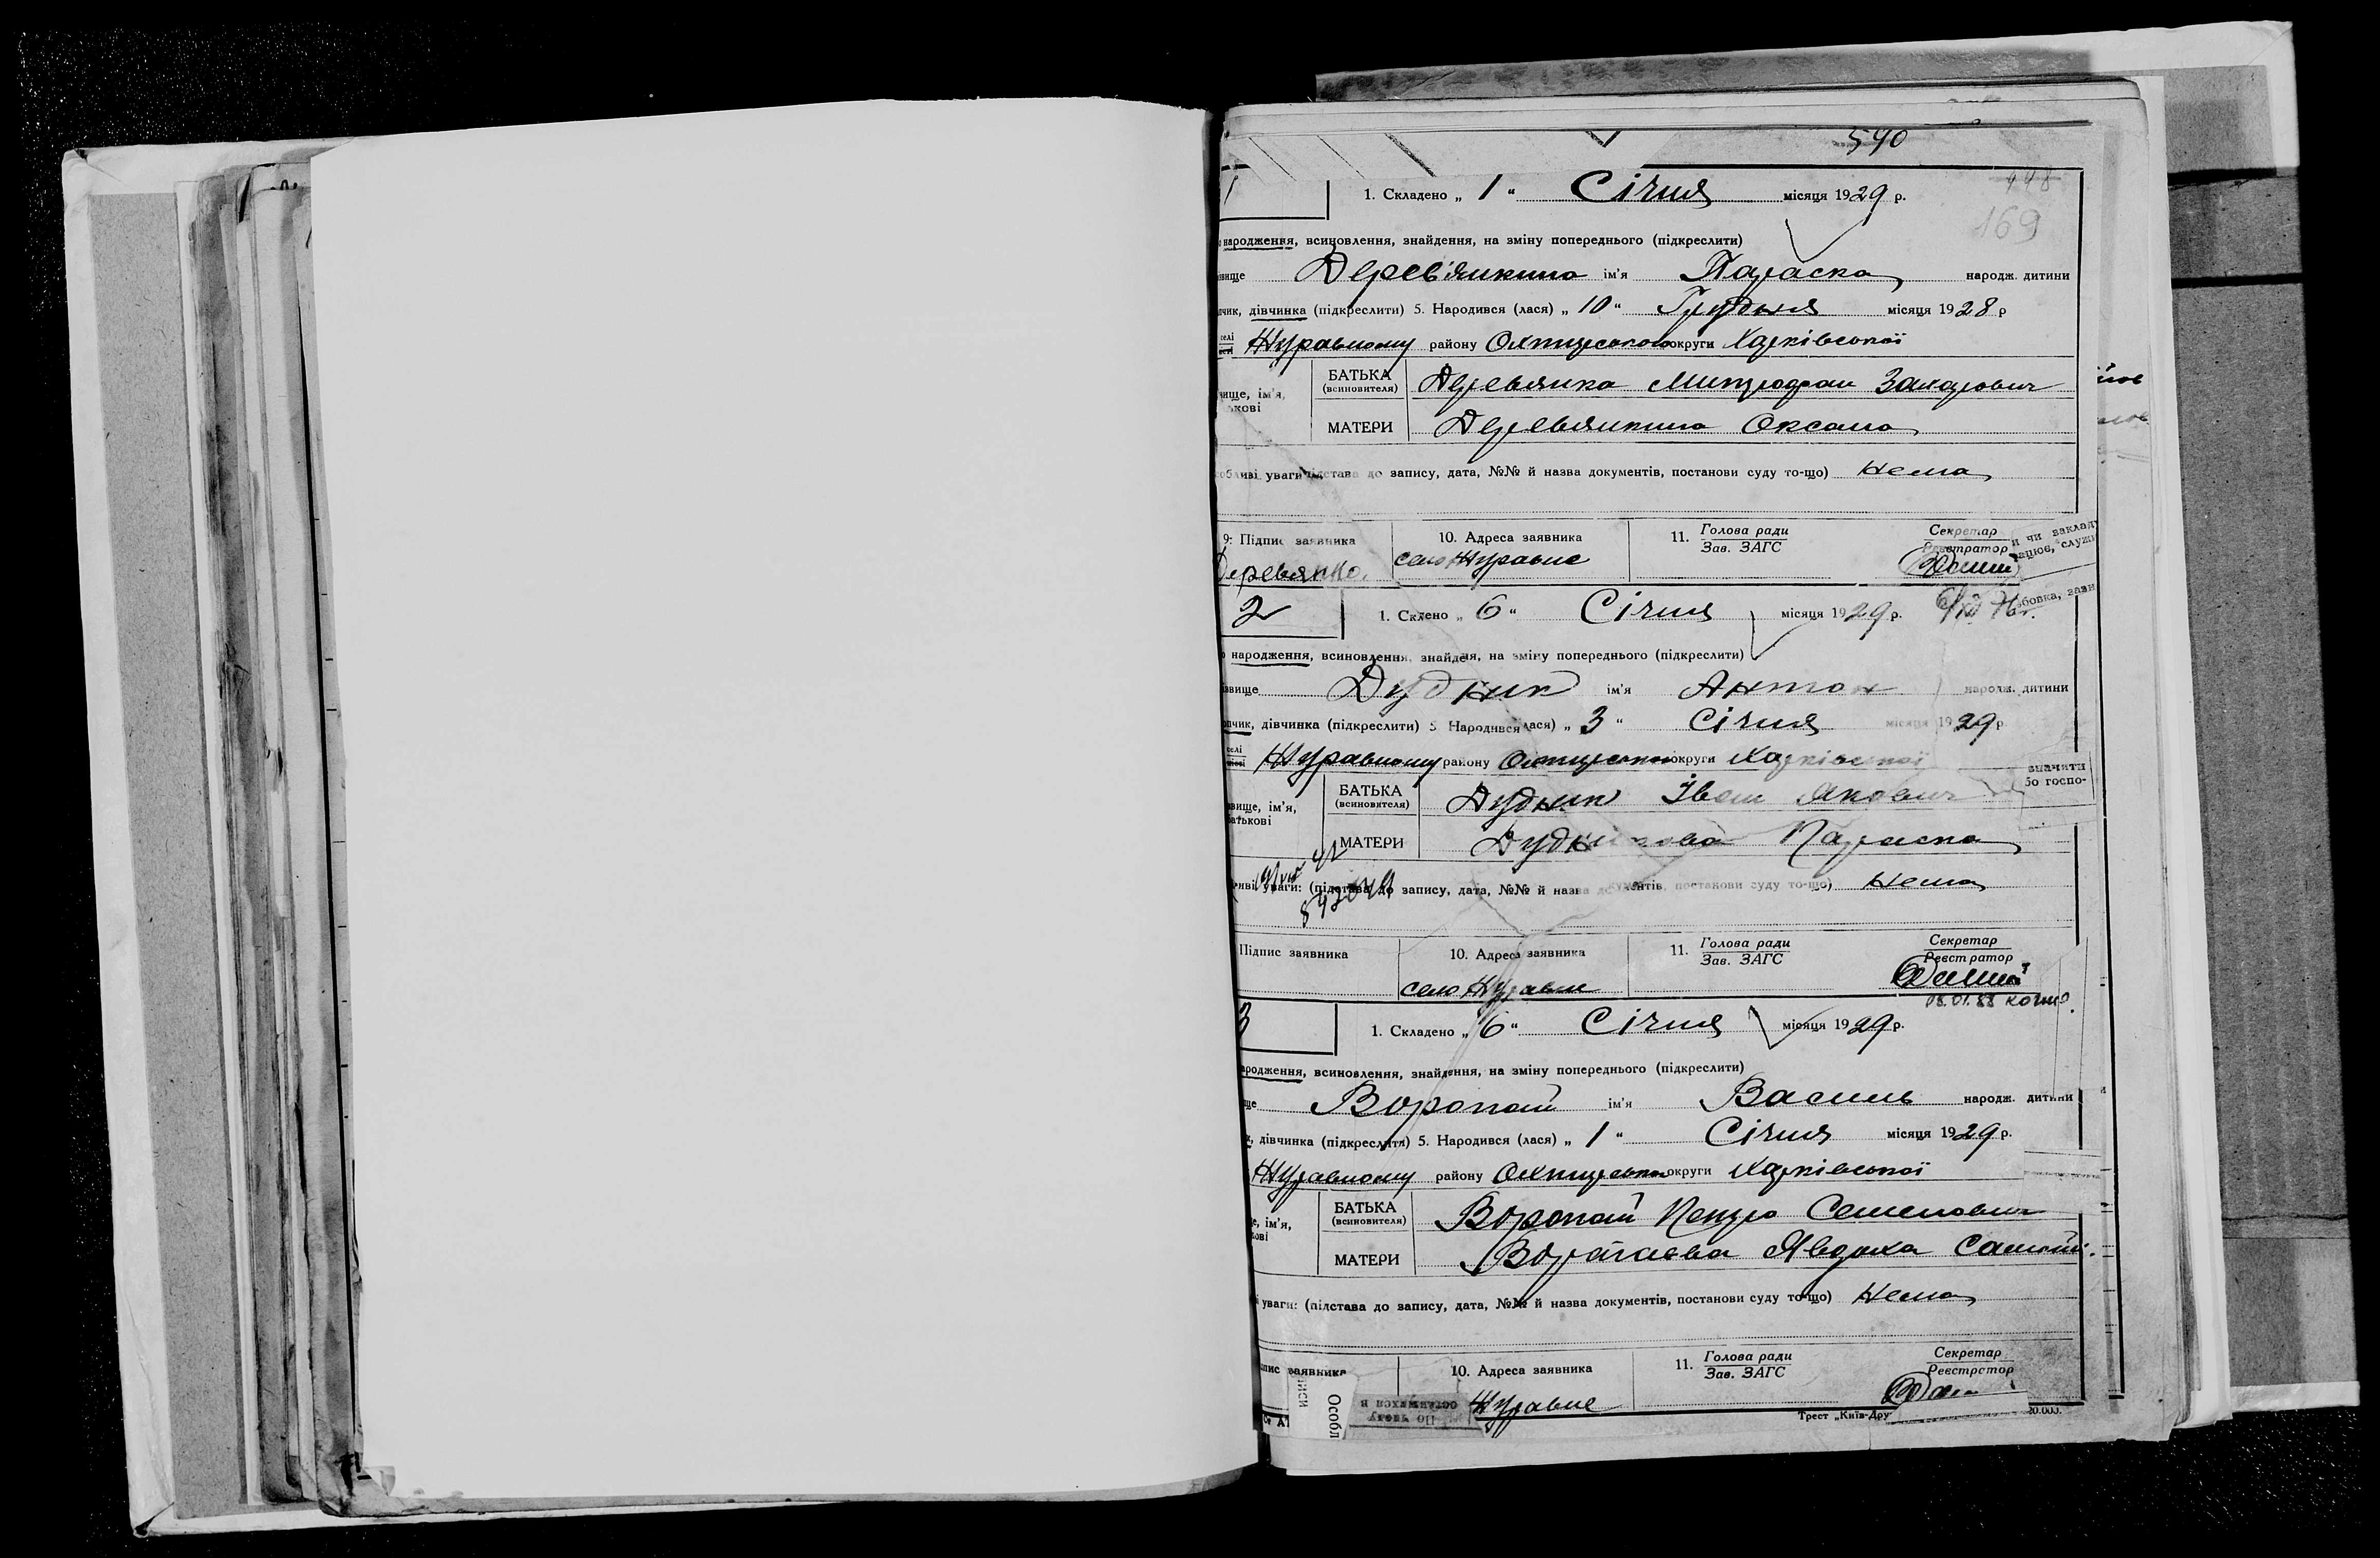 590
448
1
1. Складено „ 1 “ Січня місяця 1929 р.
169
народження, всиновлення, знайдення, на зміну попереднього (підкреслити)
звище Дерев'янкина ім'я Параска народж. дитини
пчик, дівчинка (підкреслити) 5. Народився (лася) „ 10 “ Грудня місяця 1928 р
селі Журавному району Охтирського округи Харківської
вище, ім'я, ькові БАТЬКА (всиновителя) Деревянко Митрофан Захарович
МАТЕРИ Деревянкина Оксана
собливі уваги підстава до запису, дата, №№ й назва документів, постанови суду то-що) Нема
9: Підпис заявника 10. Адреса заявника 11. Голова ради Зав. ЗАГС Секретар Реєстратор
Деревянко. село Журавне
и чи заклад
ацює, служи
2
1. Склено „ 6 “ Січня місяця 1929 р.
збовка, зазн
народження, всиновлення, знайдення, на зміну попереднього (підкреслити)
звище Дудник ім'я Антон народж. дитини
пчик, дівчинка (підкреслити) 5 Народився лася) „ 3 “ Січня місяця 1929 р.
селі Журавному району округи Харківської
значити
бо госпо-
звище, ім'я, батькові БАТЬКА (всиновителя) Дудник Іван Якович
МАТЕРИ Дудникова Параска
уваги: (підстава до запису, дата, №№ й назва документів, постанови суду то-що) Нема
Підпис заявника 10. Адреса заявника 11. Голова ради Зав. ЗАГС Секретар Реєстратор
село Журавне
08.01.88
3
1. Складено „ 6 “ Січня місяця 1929 р.
ародження, всиновлення, знайдення, на зміну попереднього (підкреслити)
ще Воропай ім'я Василь народж. дитини
к, дівчинка (підкреслити) 5. Народився (лася) „ 1 “ Січня місяця 1929 р.
Журавному району округи Харківської
е, ім'я, кові БАТЬКА (всиновителя) Воропай Петро Семенович
МАТЕРИ Воропаєва Явдоха
і уваги: (підстава до запису, дата, №№ й назва документів, постанови суду то-що) Нема
пис заявника 10. Адреса заявника 11. Голова ради Зав. ЗАГС Секретар Реєстратор
Журавне
Особл
Трест „Київ-Дру 20.000.